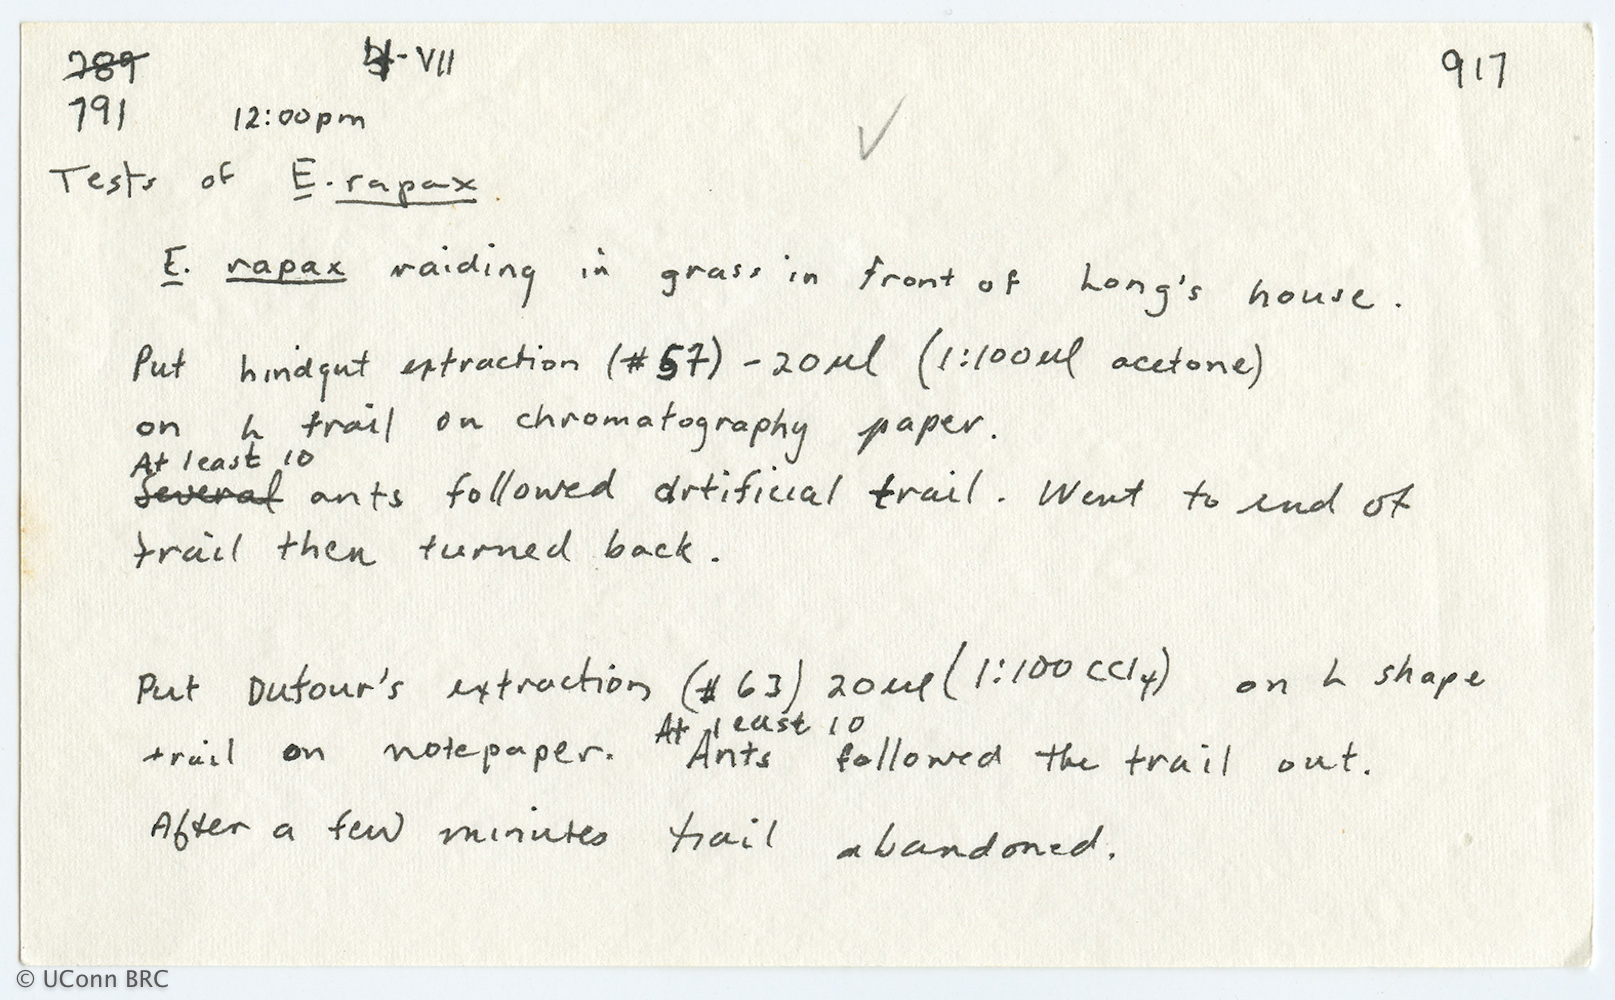 789 4-VII 917
791 12:00pm
Tests of E. rapax
E. rapax raiding in grass in front of Long's house.
Put hindgut extraction (#57) - 20 µl (1:100 µl acetone)
on h trail on chromatography paper.
At least 10
Several ants followed artificial trail. Went to end of
trail then turned back.
Put Dufour's extraction (#63) 20 µl (1:100 CCl4) on h shape
At least 10
trail on notepaper. Ants followed the trail out.
After a few minutes trail abandoned.
© UConn BRC